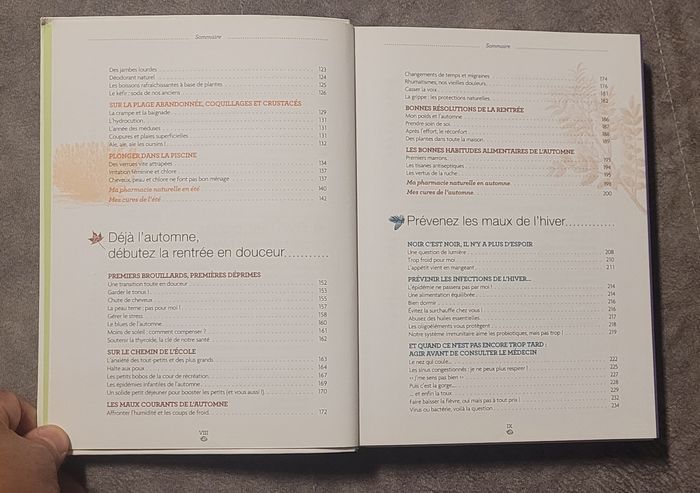 Sommaire
Des jambes lourdes 123
Déodorant naturel 124
Les boissons rafraîchissantes à base de plantes 125
Le kéfir : soda de nos anciens 126
SUR LA PLAGE ABANDONNÉE, COQUILLAGES ET CRUSTACÉS
La crampe et la baignade 129
L'hydrocution 131
L'année des méduses 131
Coupures et plaies superficielles 131
Aïe, aïe, aïe les oursins ! 132
PLONGER DANS LA PISCINE
Des verrues vite attrapées 134
Irritation féminine et chlore 137
Cheveux, peau et chlore ne font pas bon ménage 137
Ma pharmacie naturelle en été 140
Mes cures de l'été 142
Déjà l'automne,
débutez la rentrée en douceur
PREMIERS BROUILLARDS, PREMIÈRES DÉPRIMES
Une transition toute en douceur 152
Garder le tonus ! 153
Chute de cheveux 155
La peau terne : pas pour moi ! 157
Gérer le stress 158
Le blues de l'automne 160
Moins de soleil : comment compenser ? 161
Soutenir la thyroïde, la clé de notre santé 162
SUR LE CHEMIN DE L'ÉCOLE
L'anxiété des tout-petits et des plus grands 163
Halte aux poux 164
Les petits bobos de la cour de récréation 167
Les épidémies infantiles de l'automne 169
Un solide petit déjeuner pour booster les petits (et vous aussi !) 170
LES MAUX COURANTS DE L'AUTOMNE
Affronter l'humidité et les coups de froid 172
VIII
Sommaire
Changements de temps et migraines 174
Rhumatismes, nos vieilles douleurs 176
Casser la voix 181
La grippe : les protections naturelles 182
BONNES RÉSOLUTIONS DE LA RENTRÉE
Mon poids et l'automne 186
Prendre soin de soi 187
Après l'effort, le réconfort 188
Des plantes dans toute la maison 189
LES BONNES HABITUDES ALIMENTAIRES DE L'AUTOMNE
Premiers marrons 193
Les tisanes antiseptiques 194
Les vertus de la ruche 195
Ma pharmacie naturelle en automne 198
Mes cures de l'automne 200
Prévenez les maux de l'hiver
NOIR C'EST NOIR, IL N'Y A PLUS D'ESPOIR
Une question de lumière 208
Trop froid pour moi 210
L'appétit vient en mangeant 211
PRÉVENIR LES INFECTIONS DE L'HIVER...
L'épidémie ne passera pas par moi ! 214
Une alimentation équilibrée 214
Bien dormir 216
Évitez la surchauffe chez vous ! 216
Abusez des huiles essentielles 217
Les oligoéléments vous protègent 218
Notre système immunitaire aime les probiotiques, mais pas trop ! 219
ET QUAND CE N'EST PAS ENCORE TROP TARD :
AGIR AVANT DE CONSULTER LE MÉDECIN
Le nez qui coule... 222
Les sinus congestionnés : je ne peux plus respirer ! 225
« J'me sens pas bien » 227
Puis c'est la gorge... 228
... et enfin la toux 229
Faire baisser la fièvre, oui mais pas à tout prix ! 232
Virus ou bactérie, voilà la question 234
IX